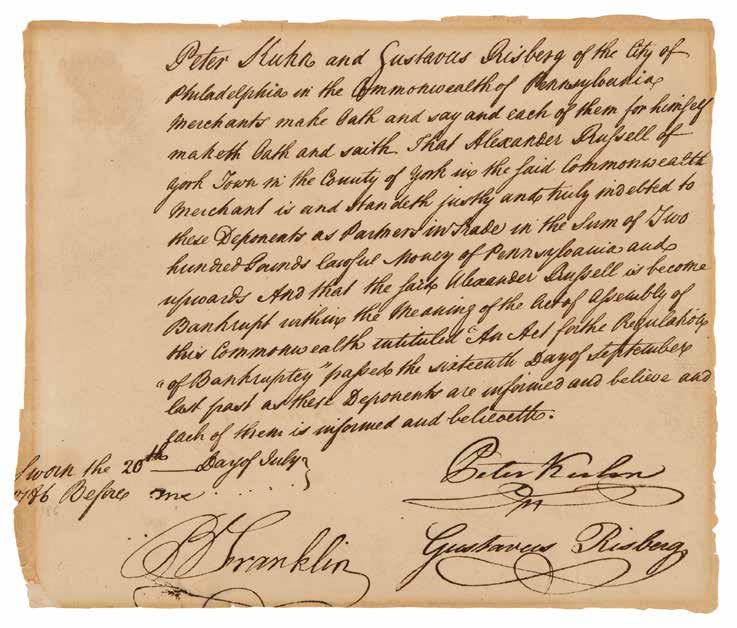 Peter Kuhn and Gustavus Risberg of the City of
Philadelphia in the Commonwealth of Pennsylvania
Merchants make Oath and say and each of them for himself
maketh Oath and saith That Alexander Russell of
York Town in the County of York in the said Commonwealth
Merchant is and standeth justly and truly indebted to
these Deponents as Partners in Trade in the Sum of Two
hundred Pounds lawful Money of Pennsylvania and
upwards And that the said Alexander Russell is become
Bankrupt within the Meaning of the Act of Assembly of
this Commonwealth intituled "An Act for the Regulation
"of Bankruptcy" passed the sixteenth Day of September
last past as these Deponents are informed and believe and
each of them is informed and believeth.
Sworn the 20th Day of July
1786 Before me
Peter Kuhn
B Franklin
Gustavus Risberg